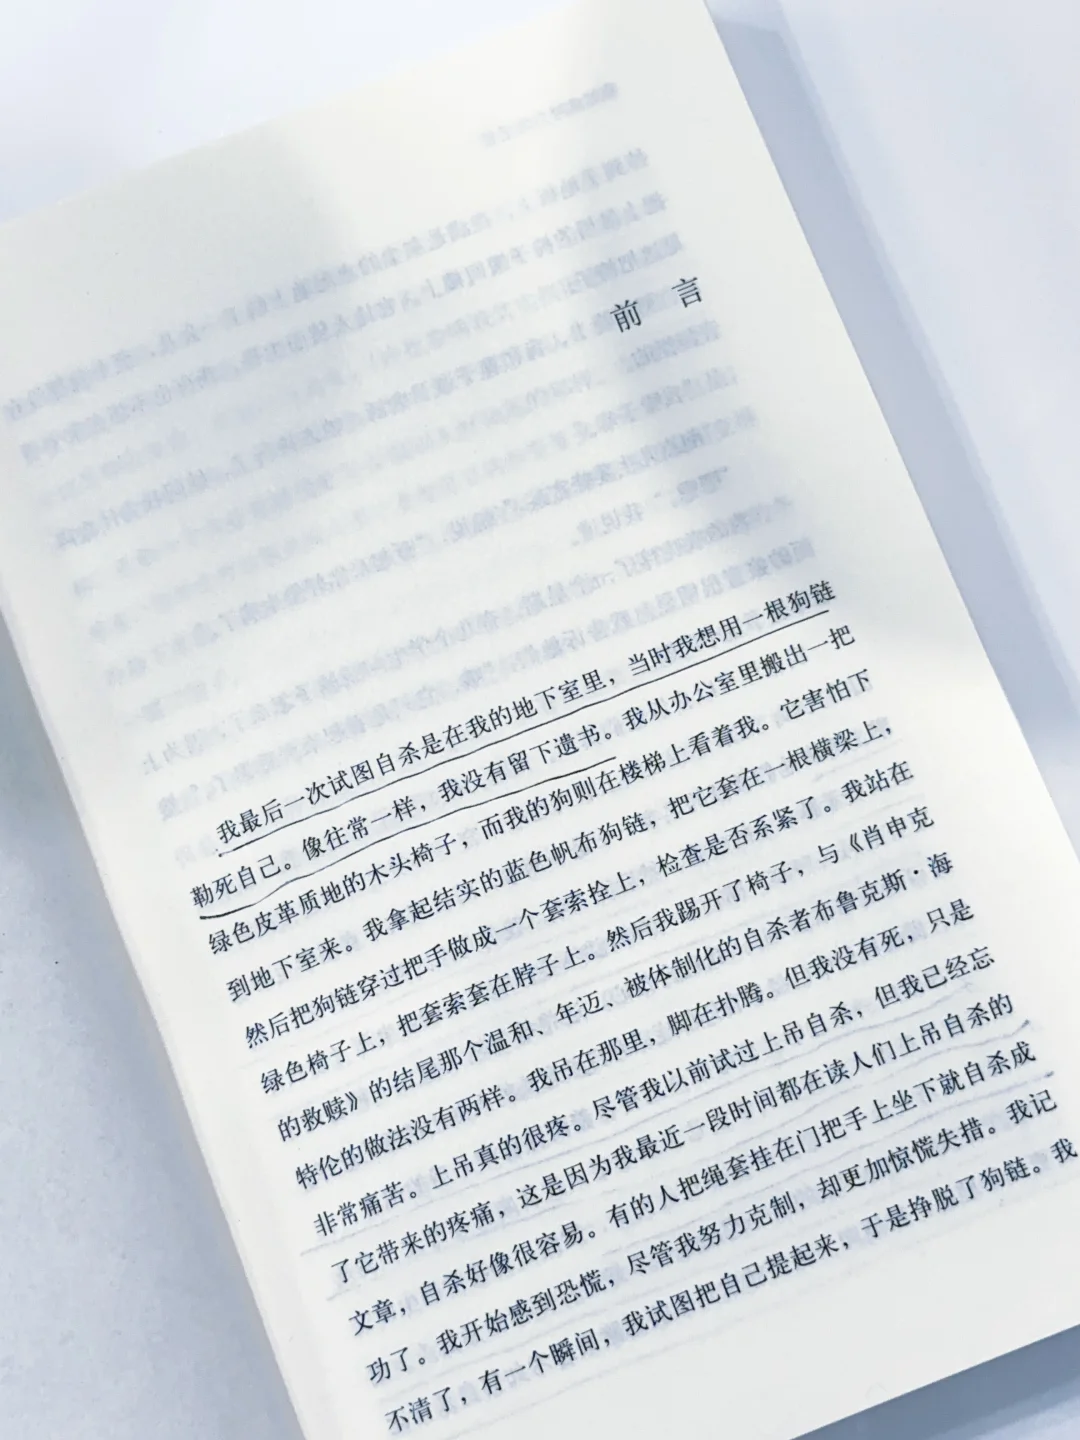 前言
我最后一次试图自杀是在我的地下室里，当时我想用一根狗链
勒死自己。像往常一样，我没有留下遗书。我从办公室里搬出一把
绿色皮革质地的木头椅子，而我的狗则在楼梯上看着我。它害怕下
到地下室来。我拿起结实的蓝色帆布狗链，把它套在一根横梁上，
然后把狗链穿过把手做成一个套索拴上，检查是否系紧了。我站在
绿色椅子上，把套索套在脖子上。然后我踢开了椅子，与《肖申克
的救赎》的结尾那个温和、年迈、被体制化的自杀者布鲁克斯·海
特伦的做法没有两样。我吊在那里，脚在扑腾。但我没有死，只是
非常痛苦。上吊真的很疼。尽管我以前试过上吊自杀，但我已经忘
了它带来的疼痛，这是因为我最近一段时间都在读人们上吊自杀的
文章，自杀好像很容易。有的人把绳套挂在门把手上坐下就自杀成
功了。我开始感到恐慌，尽管我努力克制，却更加惊慌失措。我记
不清了，有一个瞬间，我试图把自己提起来，于是挣脱了狗链。我